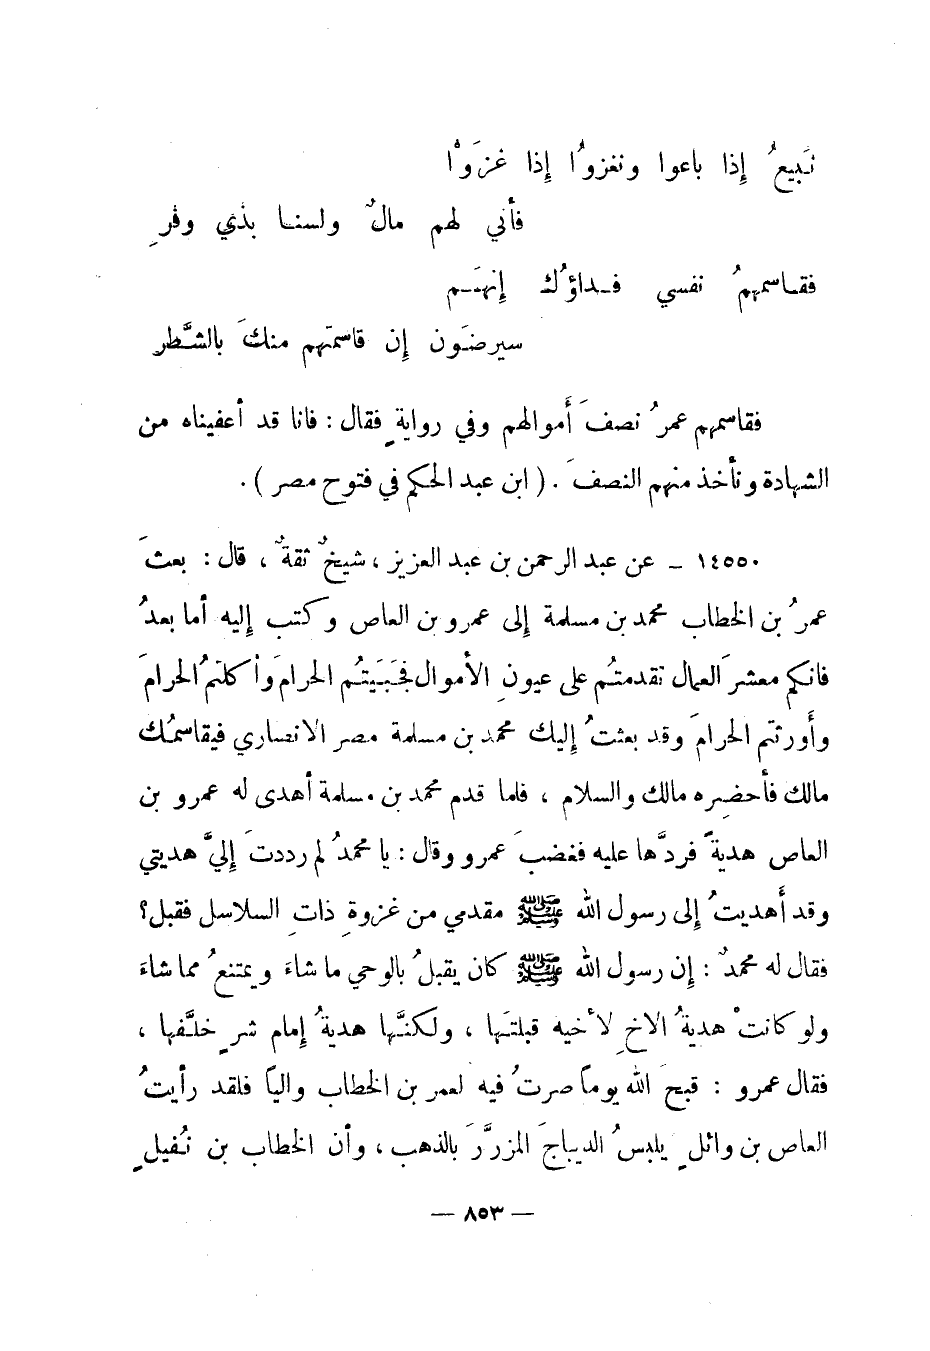 نَبيعُ إذا باعوا ونغزوُا إذا غزَوْا
فأنى لهم مالٌ ولسنا بذي وفرٍ
فقاسمهمُ نفسي فداؤُك إنهَم
سيرضَون إن قاسمتَهم منكَ بالشَّطر
فقاسمهم عمرُ نصفَ أَموالهم وفي روايةٍ فقال : فانا قد أعفيناه من
الشهادة ونأخذ منهم النصفَ . ( ابن عبد الحكم في فتوح مصر ) .
١٤٥٥٠ - عن عبد الرحمن بن عبد العزيز ، شيخٌ ثقةٌ ، قال : بعثَ
عمرُ بن الخطاب محمد بن مسلمة إلى عمرو بن العاص وكتب إليه أما بعدُ
فانكم معشرَ العمال تقدمتُم على عيونِ الأموال فجَبَيتُم الحرامَ وأكلتمُ الحرامَ
وأَورثتم الحرامَ وقد بعثتُ إليك محمد بن مسلمة مصر الانصاري فيقاسمُك
مالك فأحضِره مالك والسلام ، فلما قدم محمد بن مسلمة أهدى له عمرو بن
العاص هديةً فردَّها عليه فغضبَ عمرو وقال : يا محمدُ لم رددتَ إليَّ هديتي
وقد أَهديتُ إلى رسول الله ﷺ مقدمي من غزوةِ ذاتِ السلاسل فقبل؟
فقال له محمدٌ : إن رسول الله ﷺ كان يقبلُ بالوحي ما شاءَ ويمتنعُ مما شاءَ
ولو كانتْ هديةُ الاخِ لأخيه قبلتَها ، ولكنَّها هديةُ إمام شرٍ خلَّفها ،
فقال عمرو : قبحَ الله يوماً صرتُ فيه لعمر بن الخطاب والياً فلقد رأيتُ
العاص بن وائلٍ يلبسُ الديباجَ المزرَّرَ بالذهب ، وأن الخطاب بن نُفيلٍ
— ٨٥٣ —